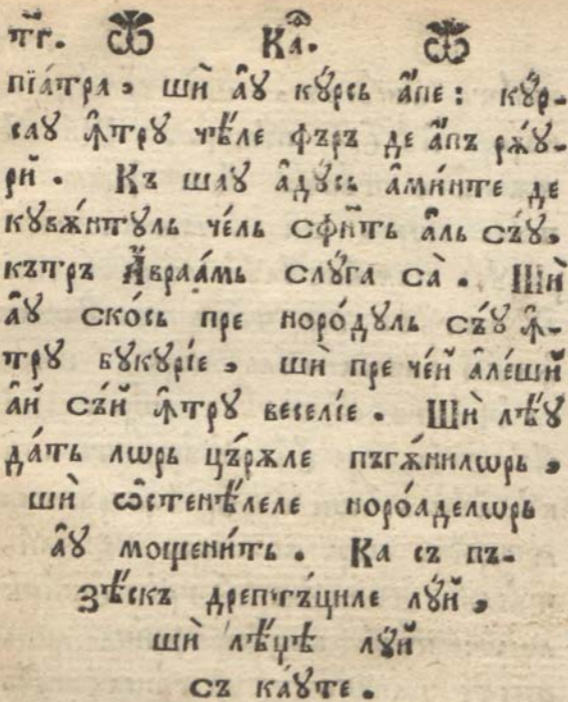 тг҃. Ка҇.
пїа́тра, шѝ а҆ꙋ кꙋ́рсь а҆́пе: кꙋ́р-
саꙋ ꙟ҆трꙋ чѣ́ле фъръ де а҆́пъ рѫ́ꙋ-
рй. Къ шаꙋ а҆дꙋ́сь а҆ми́нте де
кꙋвѫ́нтꙋль че́ль сфи́нть а҆ль съ́ꙋ,
кътръ А҆враа́мь слꙋ́га са̀. Шѝ
а҆ꙋ ско́сь пре норо́дꙋль съ́ꙋ ꙟ҆-
трꙋ бꙋкꙋрі́е, шѝ пре че́й а҆ле́шїй
а҆й съ́й ꙟ҆трꙋ веселі́е. Шѝ лѣ́ꙋ
да́ть лѡрь цъ́рѫле пъгѫ́нилѡрь,
шѝ ѡ҆стенѣ́леле норо́аделѡрь
а҆ꙋ мощени́ть. Ка съ пъ-
зѣ́скъ дрептъ́циле лꙋ́й,
шѝ лѣ́ѱѣ лꙋ́й
съ ка́ꙋте.